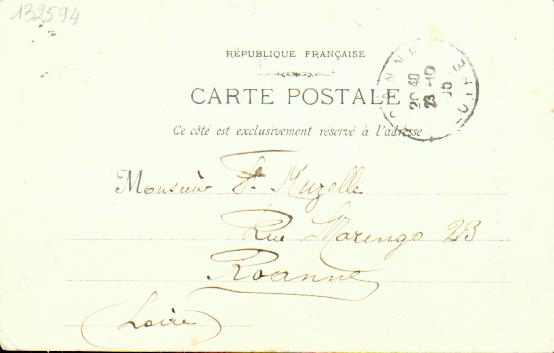 132594
RÉPUBLIQUE FRANÇAISE
CARTE POSTALE
Ce côté est exclusivement réservé à l'adresse
Monsieur
Rue Marengo 23
Roanne
(Loire)